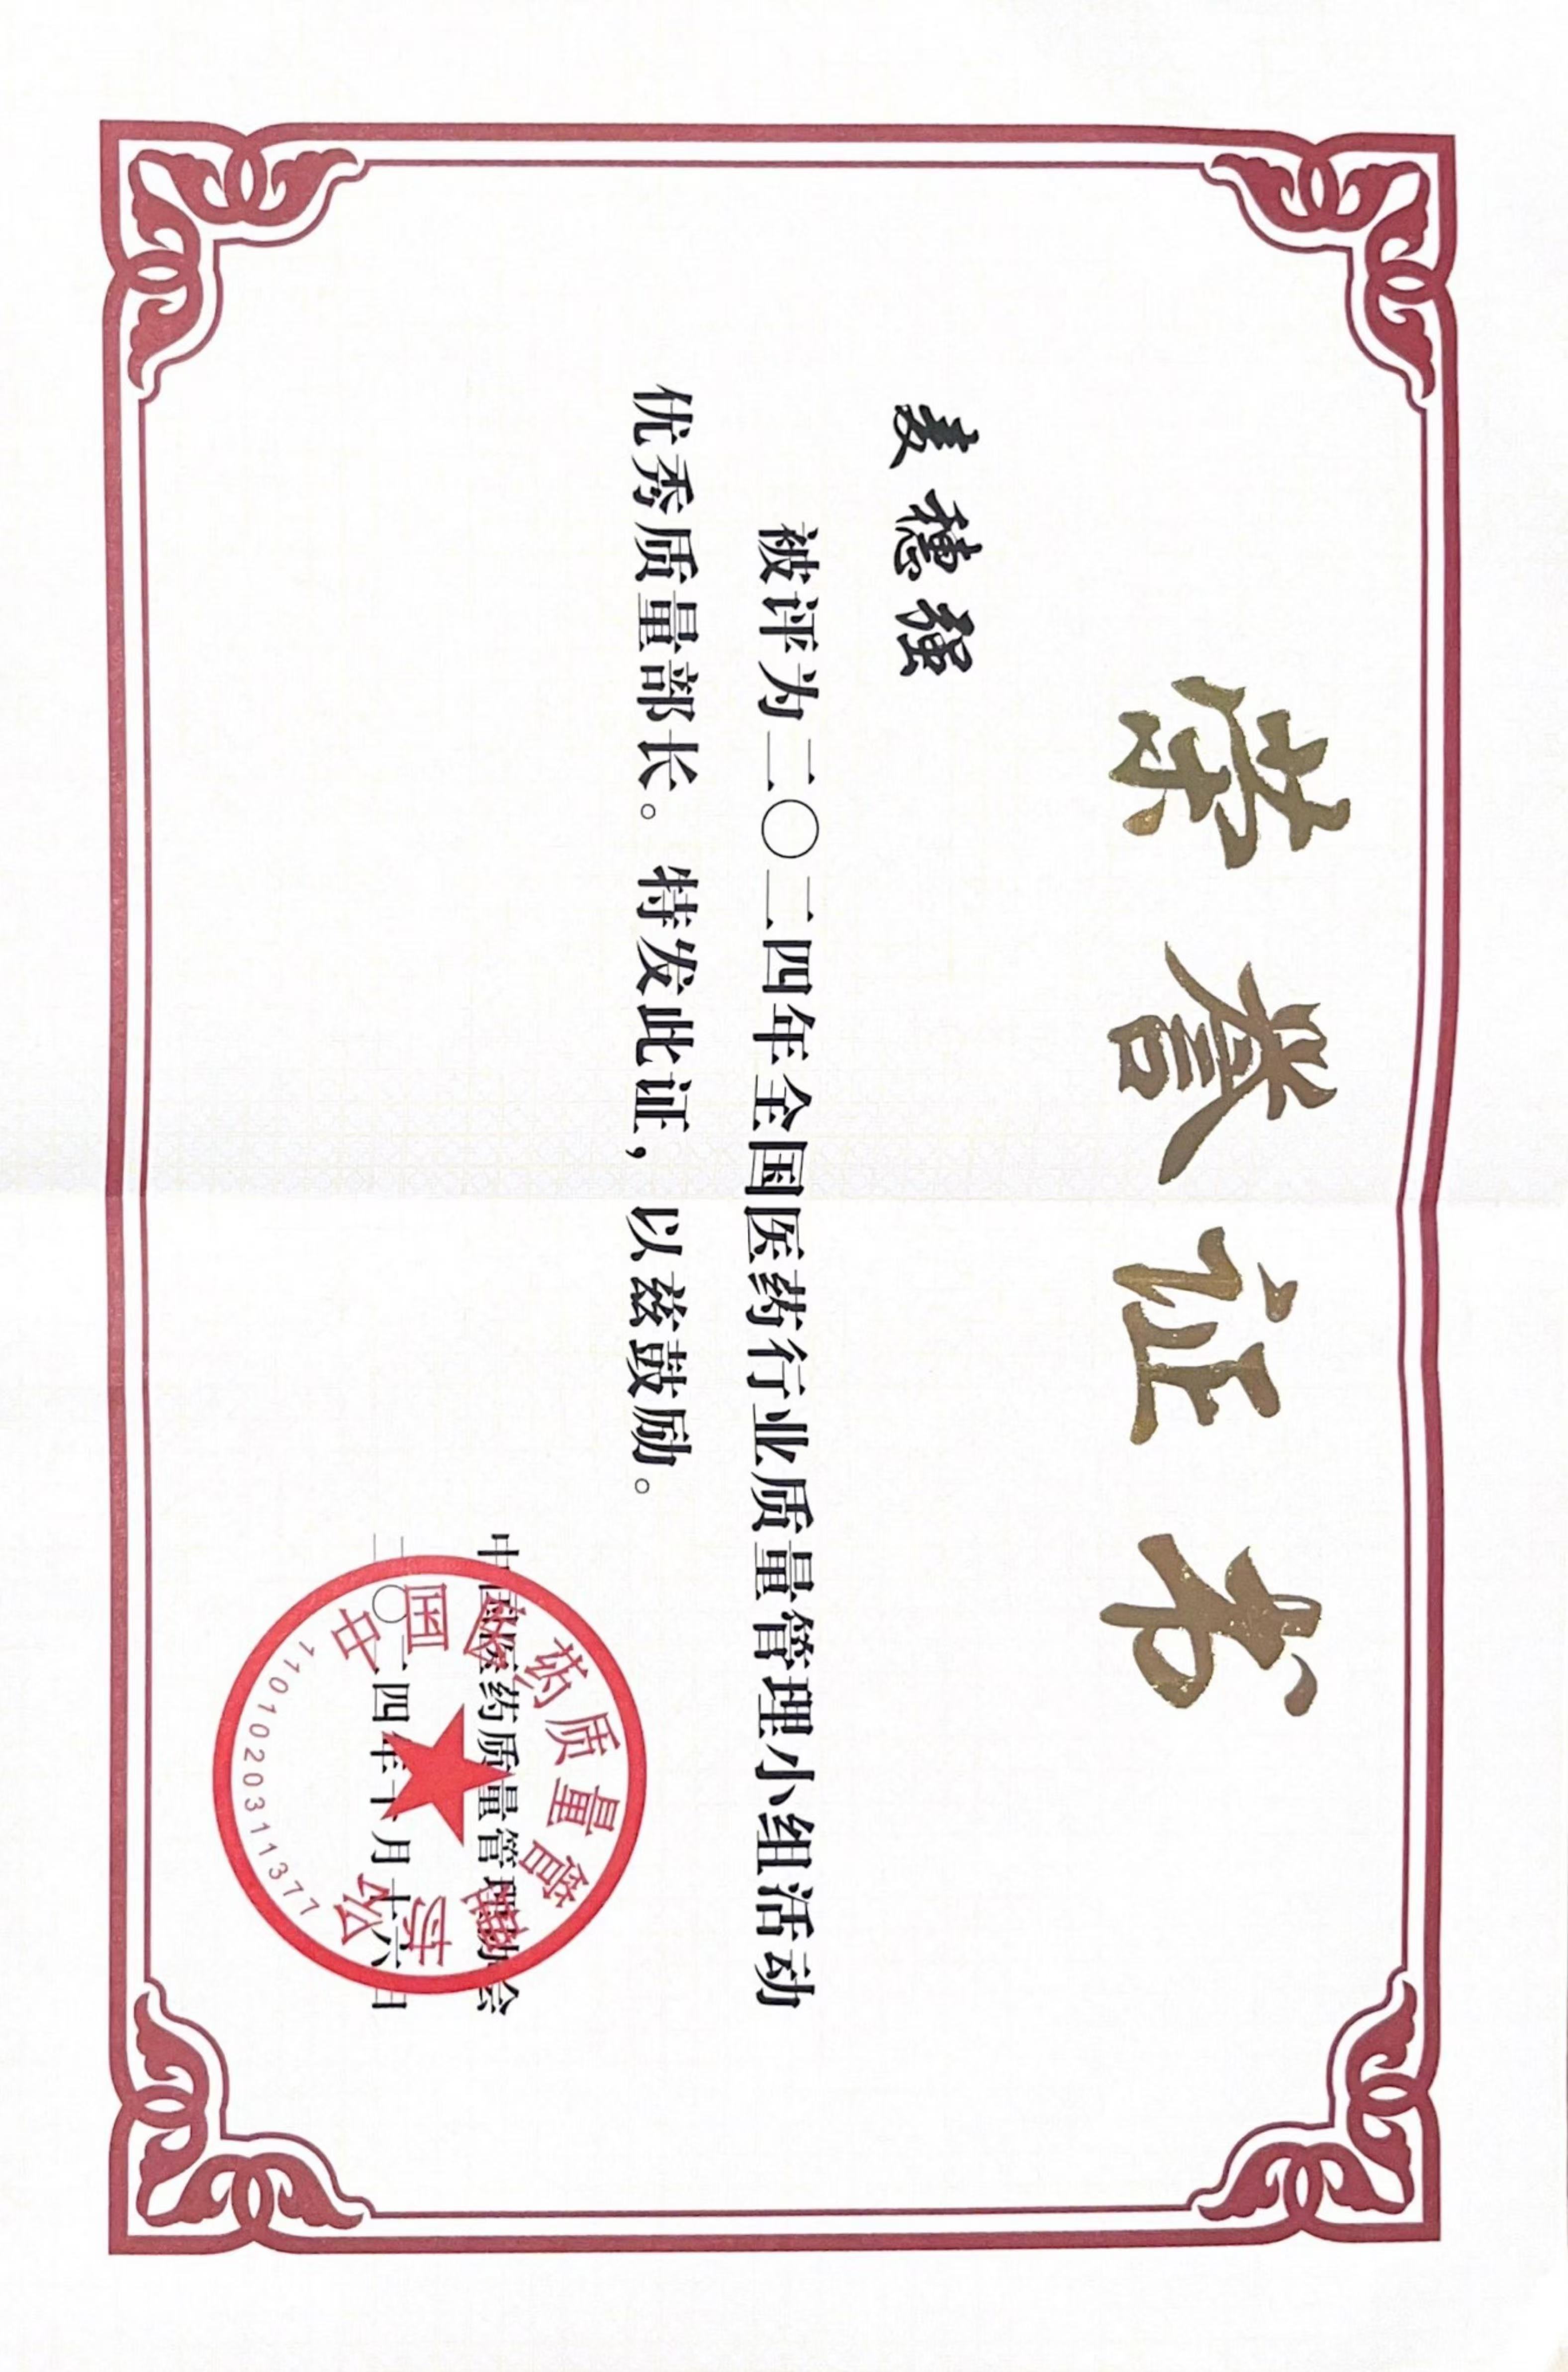 荣誉证书
麦穗强
被评为二〇二四年全国医药行业质量管理小组活动
优秀质量部长。特发此证，以兹鼓励。
中国医药质量管理协会
二〇二四年十月十六日
中国医药质量管理协会
1101020311377